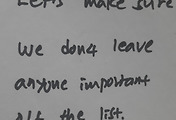 Let's make sure
we don4 leave
anyone important
off the list.